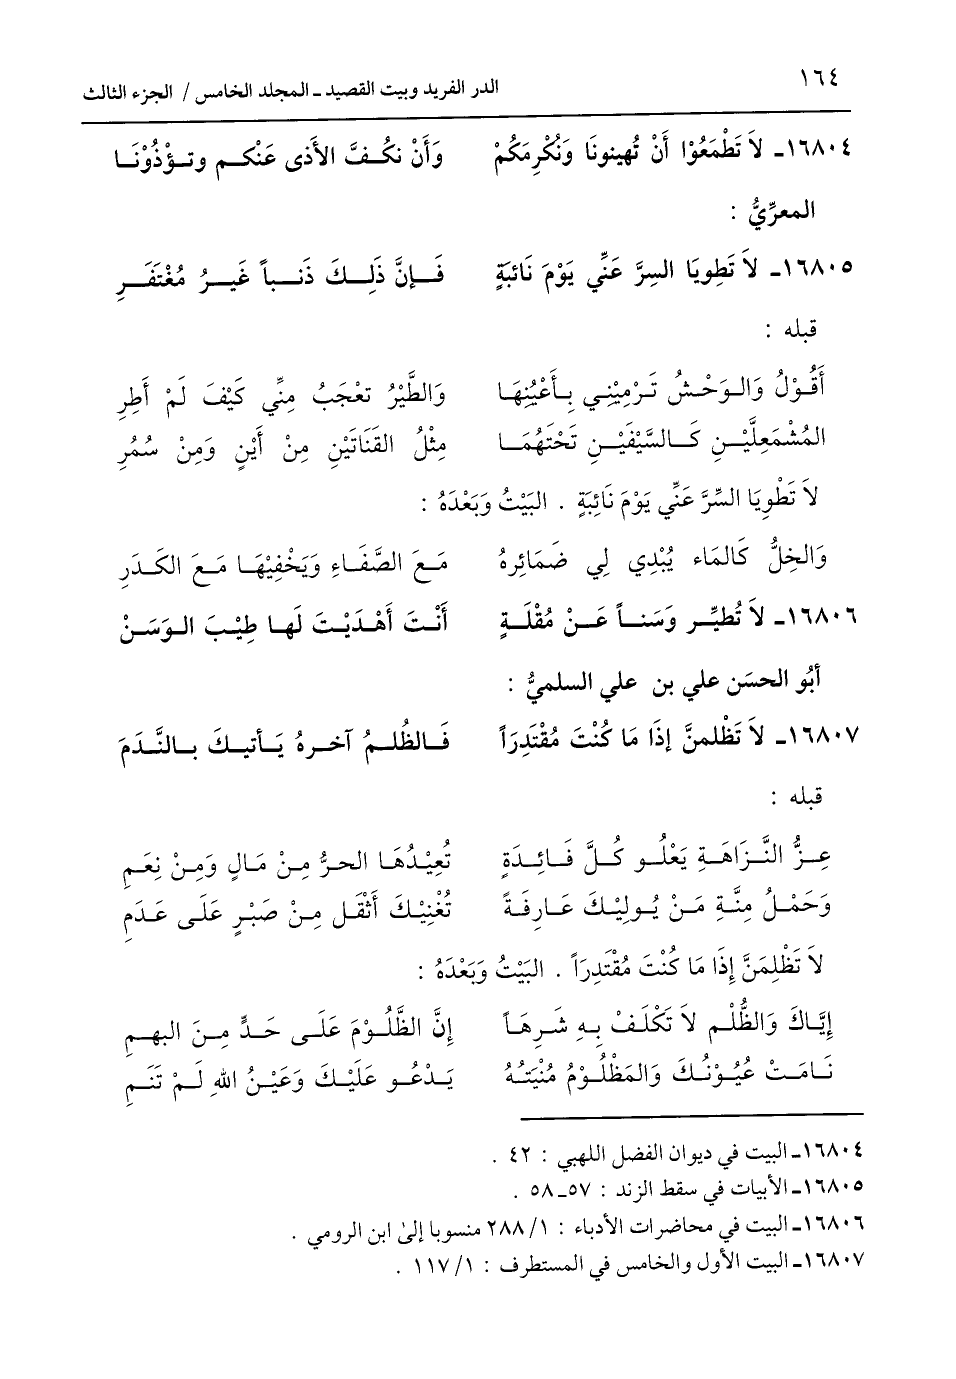 ١٦٤ الدر الفريد وبيت القصيد ـ المجلد الخامس / الجزء الثالث
١٦٨٠٤ـ لاَ تَطْمَعُوْا أَنْ تُهِينونَا وَنُكْرِمَكُمْ وَأَنْ نكُفَّ الأَذى عَنْكم وتؤْذُوْنَا
المعرِّيُّ :
١٦٨٠٥ـ لاَ تَطوِيَا السِرَّ عَنِّي يَوْمَ نَائبَةٍ فَإنَّ ذَلِكَ ذَنباً غَيرُ مُغْتفَرِ
قبله :
أَقُوْلُ وَالوَحْشُ تَرمِيْنِي بِأَعْيُنِهَا وَالطَّيْرُ تعْجَبُ مِنِّي كَيْفَ لَمْ أَطِرِ
المُشْمَعِلَّيْنِ كَالسَّيْفَيْنِ تَحْتَهُمَا مِثْلُ القَنَاتَيْنِ مِنْ أَيْنٍ وَمِنْ سُمُرِ
لاَ تَطْوِيَا السِّرَّ عَنِّي يَوْمَ نَائِبَةٍ . البَيْتُ وَبَعْدَهُ :
وَالخِلُّ كَالمَاء يُبْدِي لِي ضَمَائِرهُ مَعَ الصَّفَاءِ وَيَخْفِيْهَا مَعَ الكَدَرِ
١٦٨٠٦ـ لاَ تُطيِّر وَسَناً عَنْ مُقْلَةٍ أَنْتَ أَهْدَيْتَ لَها طِيْبَ الوَسَنْ
أبُو الحسَن علي بن علي السلميُّ :
١٦٨٠٧ـ لاَ تَظْلمنَّ إذَا مَا كُنْتَ مُقْتَدِرَاً فَالظُلمُ آخرهُ يَأتيكَ بالنَّدَمَ
قبله :
عِزُّ النَّزَاهَةِ يَعْلُو كُلَّ فَائِدَةٍ تُعِيْدُهَا الحرُّ مِنْ مَالٍ وَمِنْ نِعَمِ
وَحَمْلُ مِنَّةِ مَنْ يُولِيْكَ عَارفَةً تُغْنِيْكَ أَثْقَل مِنْ صَبْرٍ عَلَى عَدَمِ
لاَ تَظْلِمَنَّ إِذَا مَا كُنْتَ مُقْتَدِرَاً . البَيْتُ وَبَعْدَهُ :
إِيَّاكَ وَالظُّلْم لاَ تَكْلَفْ بِهِ شَرِهَاً إِنَّ الظَّلُوْمَ عَلَى حَدٍّ مِنَ البهمِ
نَامَتْ عُيُوْنُكَ وَالمَظْلُوْمُ مُنْيَتُهُ يَدْعُو عَلَيْكَ وَعَيْنُ اللهِ لَمْ تَنَمِ
١٦٨٠٤ـ البيت في ديوان الفضل اللهبي : ٤٢ .
١٦٨٠٥ـ الأبيات في سقط الزند : ٥٧ـ٥٨ .
١٦٨٠٦ـ البيت في محاضرات الأدباء : ١/ ٢٨٨ منسوبا إلىٰ ابن الرومي .
١٦٨٠٧ـ البيت الأول والخامس في المستطرف : ١/ ١١٧ .